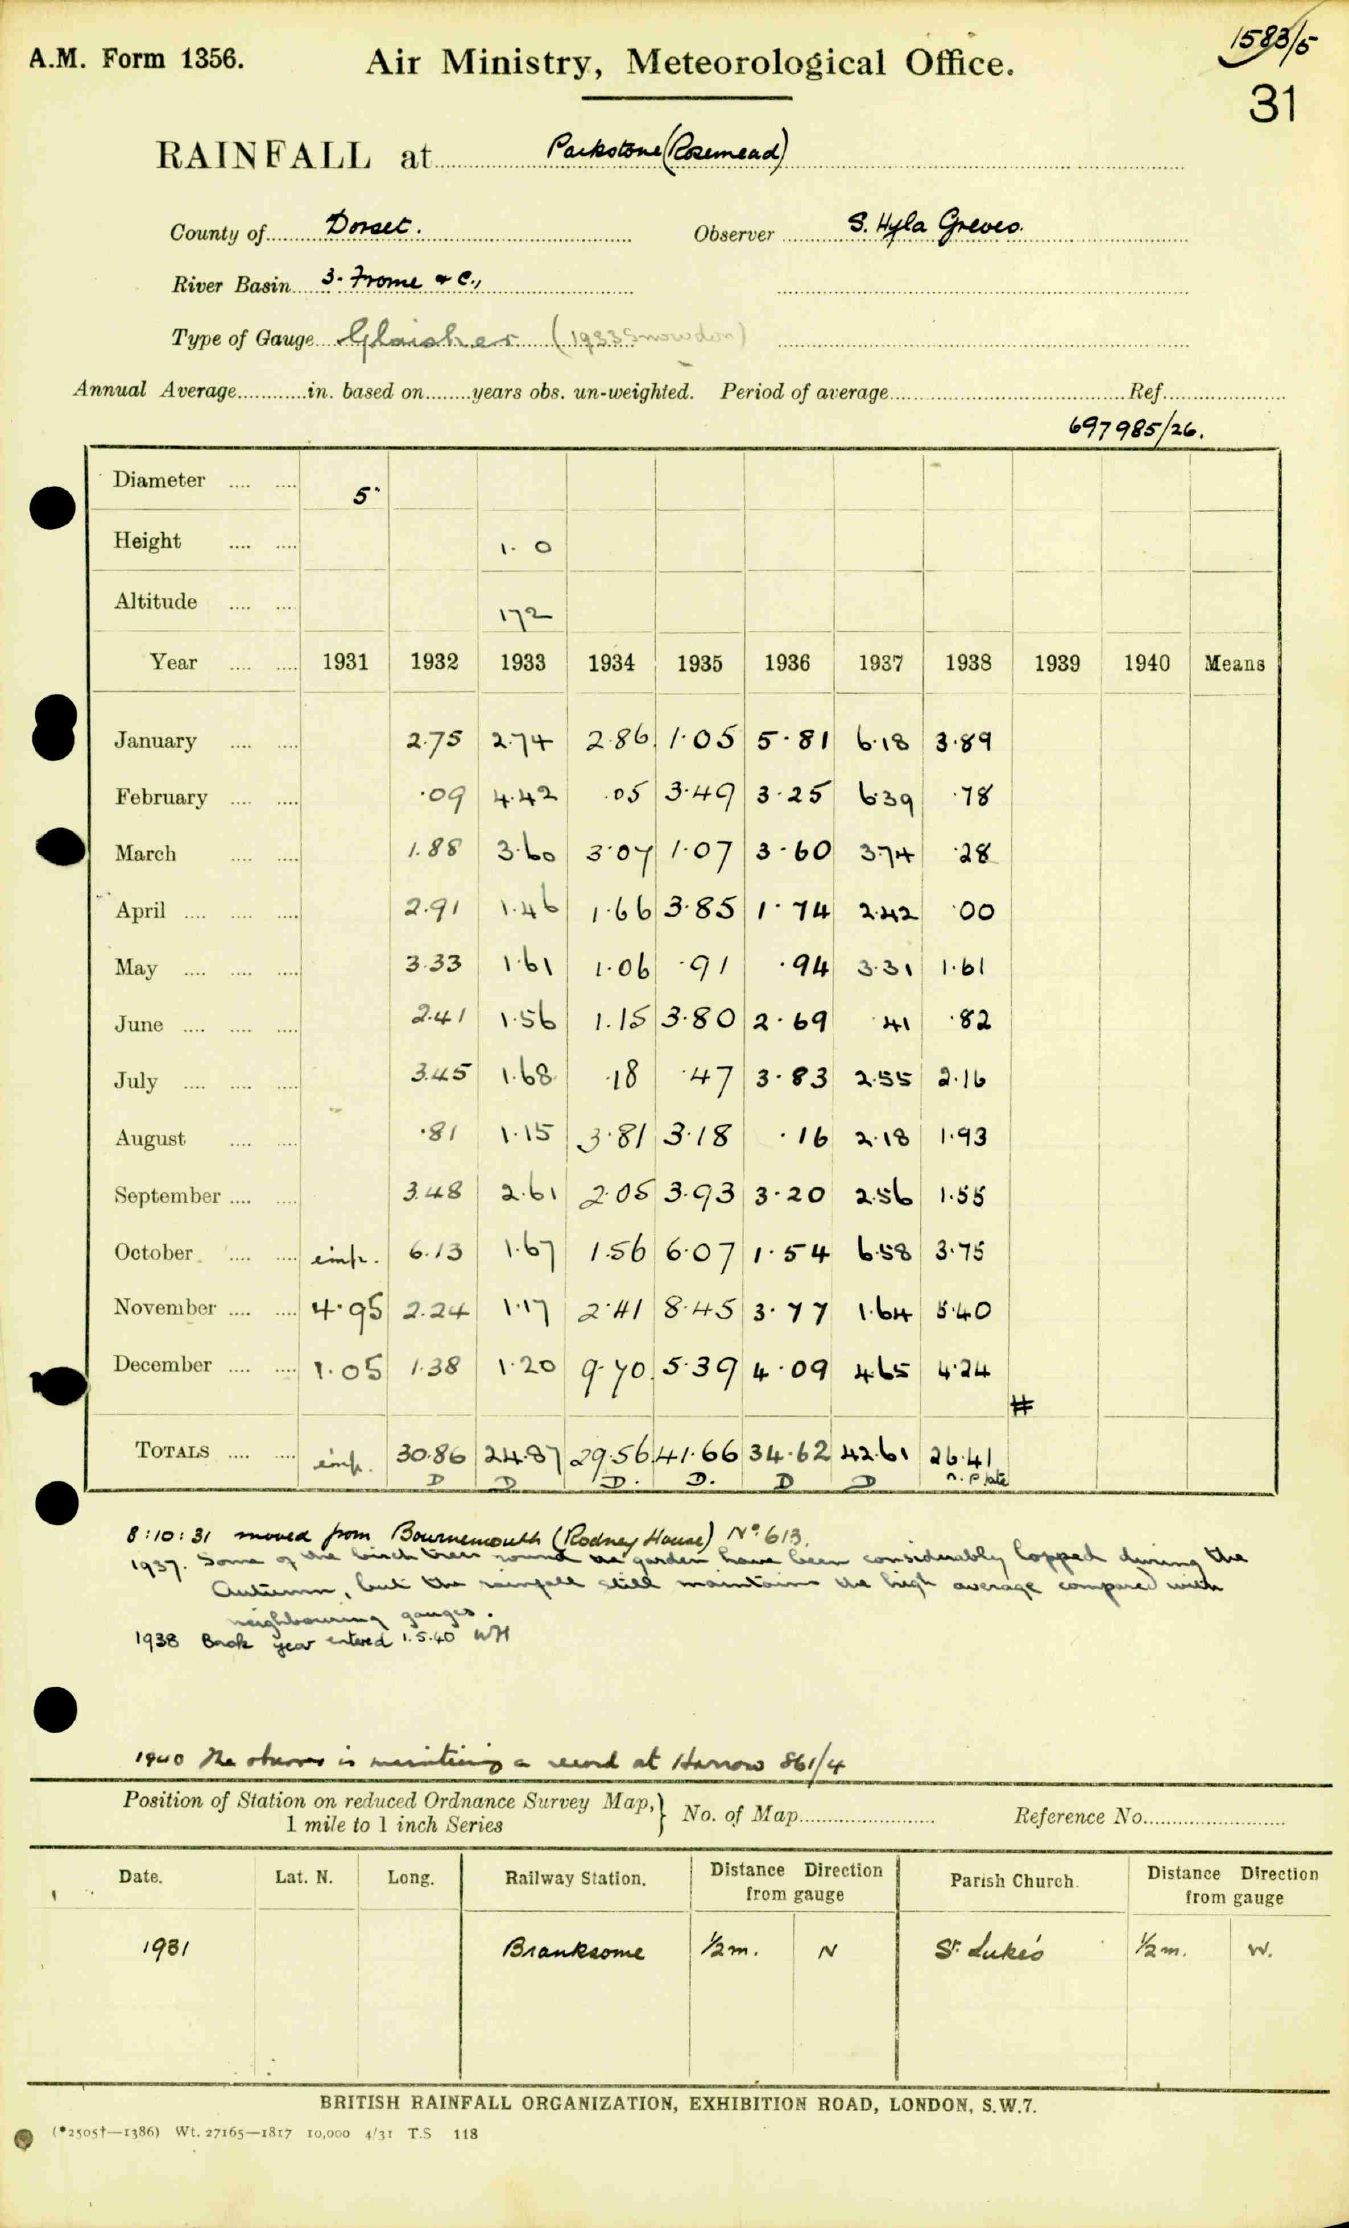 1583/5
A.M. Form 1356. Air Ministry, Meteorological Office.
31
RAINFALL at Parkstone (Rosemead)
County of Dorset. Observer S. Hyla Greves.
River Basin 3. Frome & C.,
Type of Gauge Glaisher (1933 Snowdon)
Annual Average in. based on years obs. un-weighted. Period of average Ref.
697985/26.
Diameter 5"
Height 1.0
Altitude 172
Year 1931 1932 1933 1934 1935 1936 1937 1938 1939 1940 Means
January 2.75 2.74 2.86 1.05 5.81 6.18 3.89
February .09 4.42 .05 3.49 3.25 6.39 .78
March 1.88 3.60 3.07 1.07 3.60 3.74 .28
April 2.91 1.46 1.66 3.85 1.74 2.42 .00
May 3.33 1.61 1.06 .91 .94 3.31 1.61
June 2.41 1.56 1.15 3.80 2.69 .41 .82
July 3.45 1.68 .18 .47 3.83 2.55 2.16
August .81 1.15 3.81 3.18 .16 2.18 1.93
September 3.48 2.61 2.05 3.93 3.20 2.56 1.55
October imp. 6.13 1.67 1.56 6.07 1.54 6.58 3.75
November 4.95 2.24 1.17 2.41 8.45 3.77 1.64 5.40
December 1.05 1.38 1.20 9.70 5.39 4.09 4.65 4.24
#
TOTALS imp. 30.86 24.87 29.56 41.66 34.62 42.61 26.41
D D D. D. D D n. P late
8:10:31 moved from Bournemouth (Rodney House) No. 613.
1937. Some of the birch trees round the garden have been considerably lopped during the
Autumn, but the rainfall still maintains the high average compared with
neighbouring gauges.
1938 Back year entered 1.5.40 WH
1940 The observer is maintaining a record at Harrow 861/4
Position of Station on reduced Ordnance Survey Map,} No. of Map Reference No.
1 mile to 1 inch Series
Date. Lat. N. Long. Railway Station. Distance Direction from gauge Parish Church. Distance Direction from gauge
1931 Branksome ½m. N St. Luke's ½m. W.
BRITISH RAINFALL ORGANIZATION, EXHIBITION ROAD, LONDON, S.W.7.
(*2505†—1386) Wt. 27165—1817 10,000 4/31 T.S 118